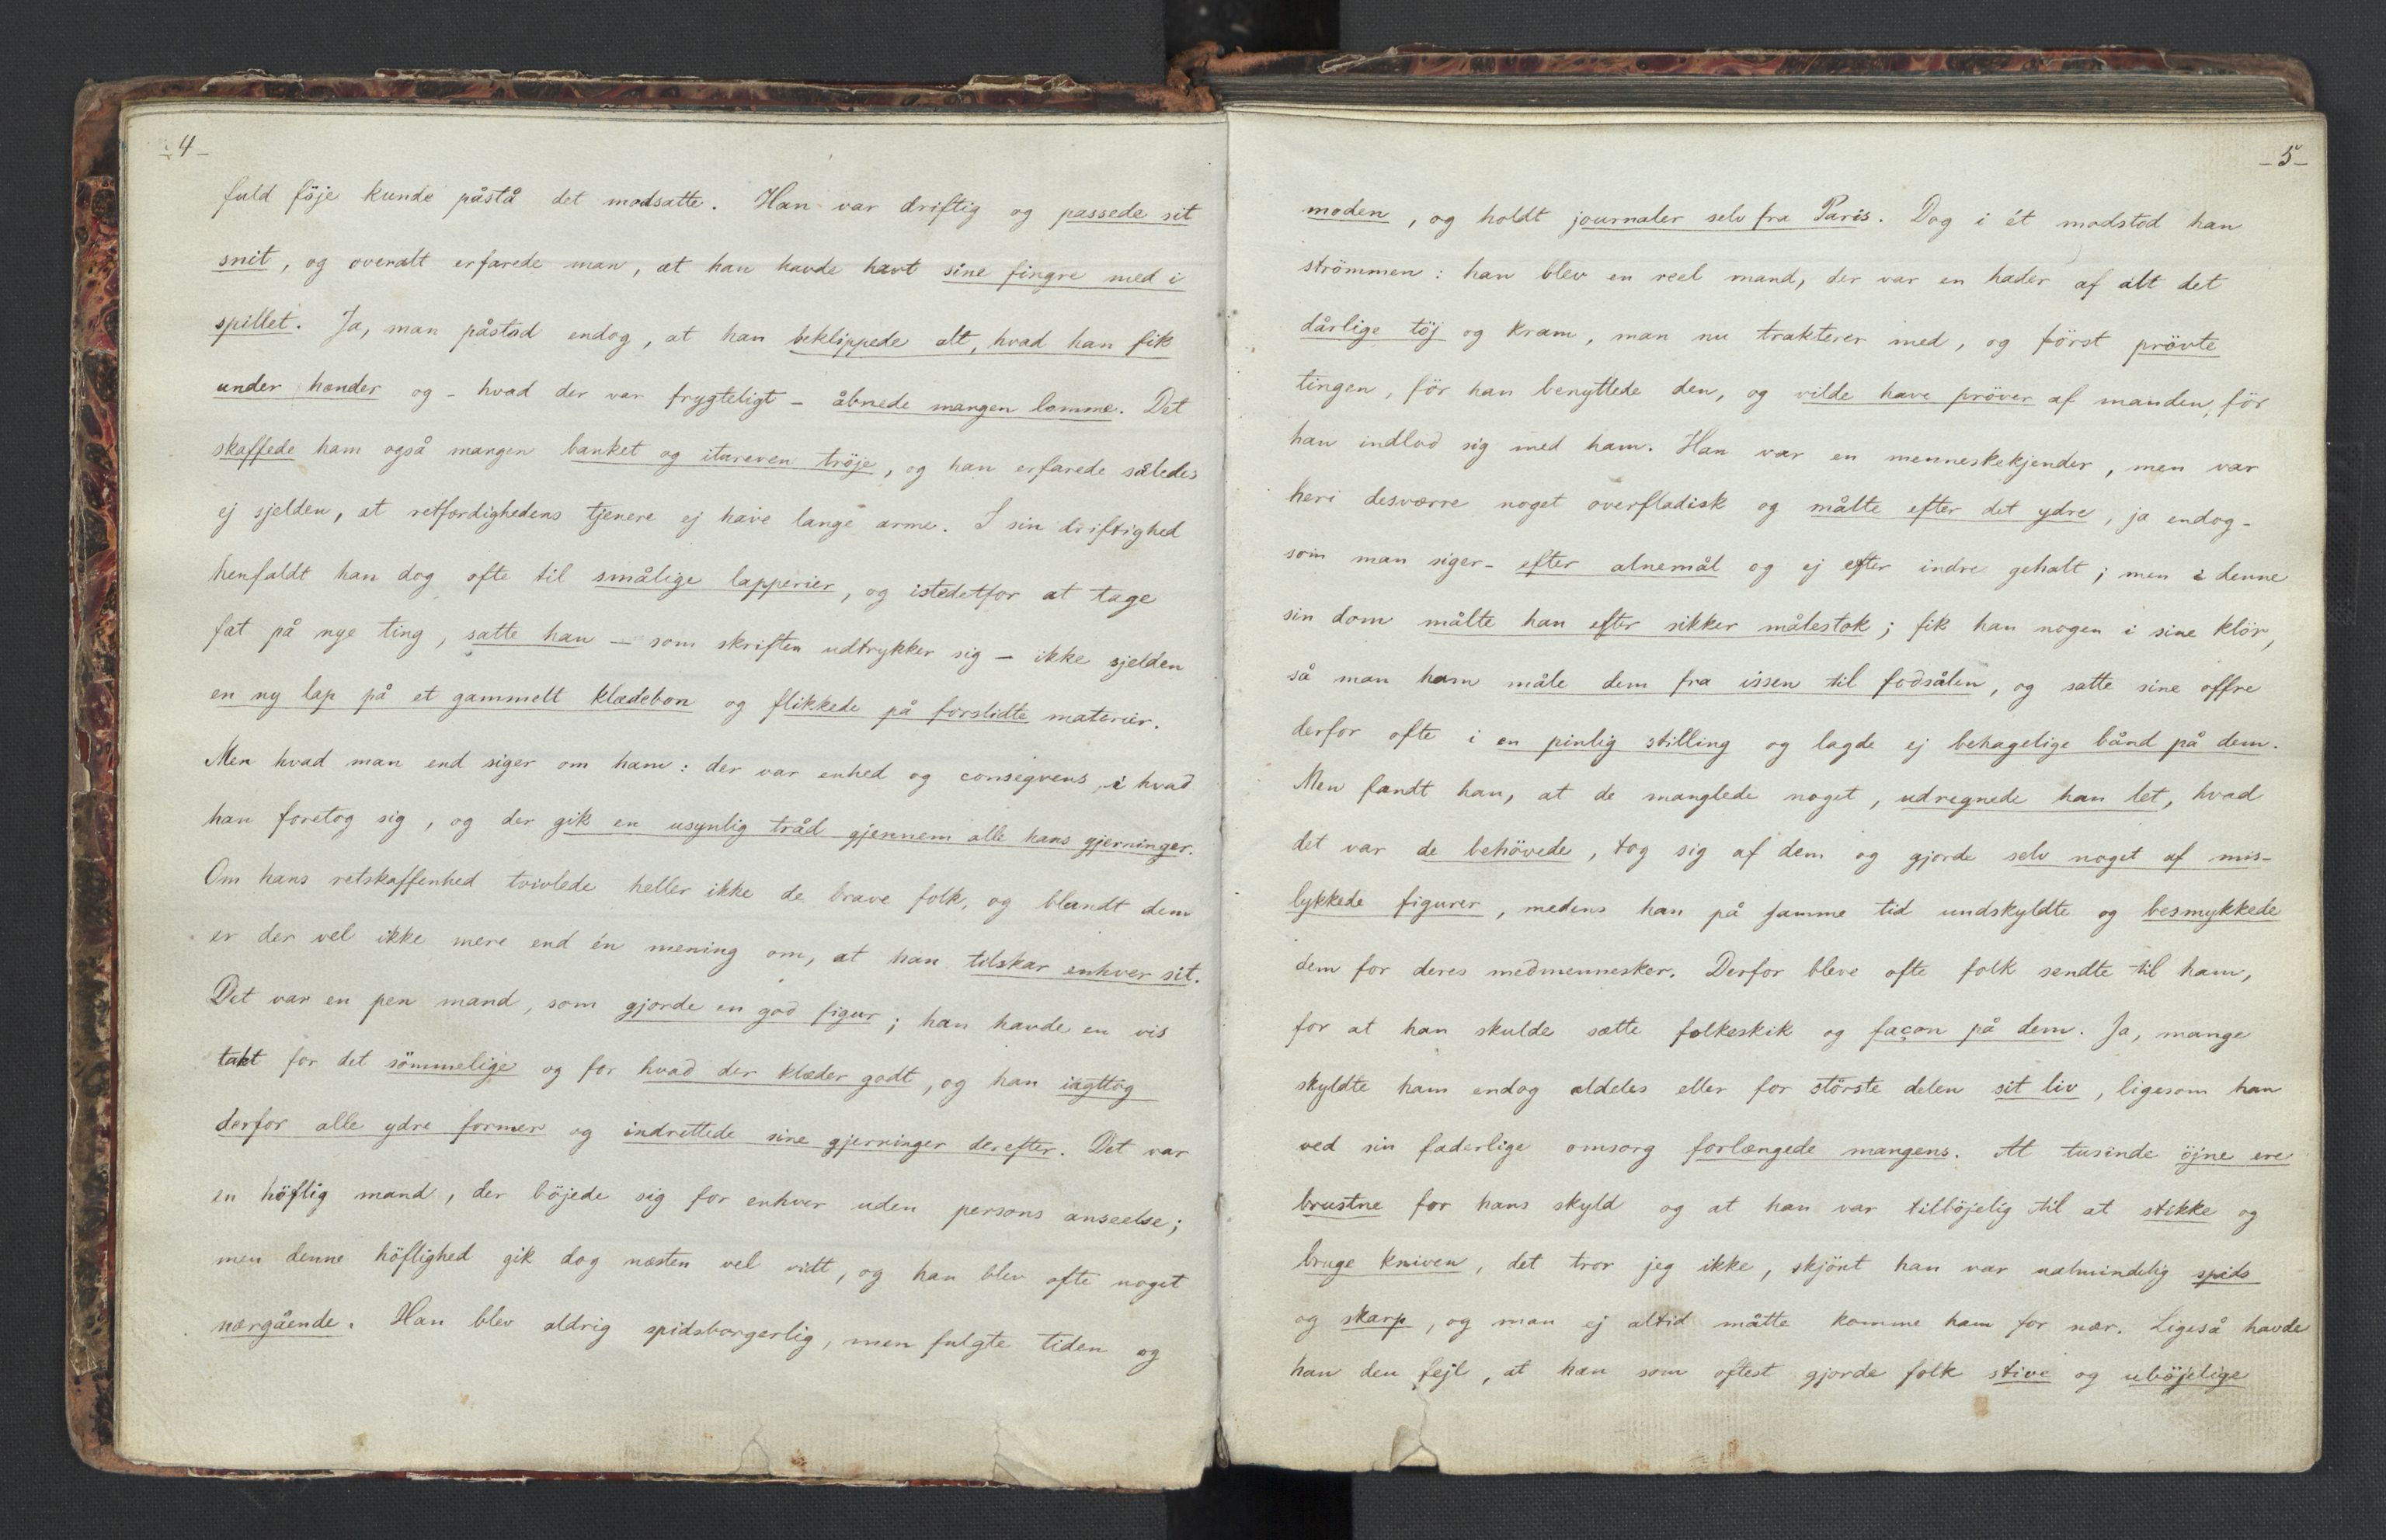 -4-
fuld föje kunde påstå det modsatte. Han var driftig og passede sit
snit, og overalt erfarede man, at han havde havt sine fingre med i
spillet. Ja, man påstod endog, at han beklippede alt, hvad han fik
under hænder og - hvad der var frygteligt - åbnede mangen lomme. Det
skaffede ham også mangen banket og itureven tröje, og han erfarede således
ej sjelden, at retfærdighedens tjenere ej have lange arme. I sin driftighed
henfaldt han dog ofte til smålige lapperier, og istedetfor at tage
fat på nye ting, satte han - som skriften udtrykker sig - ikke sjelden
en ny lap på et gammelt klædebon og flikkede på forslidte materier.
Men hvad man end siger om ham: der var enhed og conseqvens i hvad
han foretog sig, og der gik en usynlig tråd gjennem alle hans gjerninger.
Om hans retskaffenhed tvivlede heller ikke de brave folk, og blandt dem
er der vel ikke mere end én mening om, at han tilskar enhver sit.
Det var en pen mand, som gjorde en god figur; han havde en vis
takt for det sömmelige og for hvad der klæder godt, og han iagttog
derfor alle ydre former og indrettede sine gjerninger derefter. Det var
en höflig mand, der böjede sig for enhver uden persons anseelse;
men denne höflighed gik dog næsten vel vidt, og han blev ofte noget
nærgående. Han blev aldrig spidsborgerlig, men fulgte tiden og
-5-
moden, og holdt journaler selv fra Paris. Dog i ét modstod han
strömmen: han blev en reel mand, der var en hader af alt det
dårlige töj og kram, man nu trakterer med, og först prövte
tingen, för han benyttede den, og vilde have pröver af manden, för
han indlod sig med ham. Han var en menneskekjender, men var
heri desværre noget overfladisk og målte efter det ydre, ja endog -
som man siger - efter alnemål og ej efter indre gehalt; men i denne
sin dom målte han efter sikker målestok; fik han nogen i sine klör,
så man ham måle dem fra issen til fodsålen, og satte sine offre
derfor ofte i en pinlig stilling og lagde ej behagelige bånd på dem.
Men fandt han, at de manglede noget, udregnede han let, hvad
det var de behövede, tog sig af dem og gjorde selv noget af mis-
lykkede figurer, medens han på samme tid undskyldte og besmykkede
dem for deres medmennesker. Derfor bleve ofte folk sendte til ham,
for at han skulde sætte folkeskik og façon på dem. Ja, mange
skyldte ham endog aldeles eller for störste delen sit liv, ligesom han
ved sin faderlige omsorg forlængede mangens. At tusinde öjne ere
brustne for hans skyld og at han var tilböjelig til at stikke og
bruge kniven, det tror jeg ikke, skjönt han var ualmindelig spids
og skarp, og man ej altid måtte komme ham for nær. Ligeså havde
han den fejl, at han som oftest gjorde folk stive og uböjelige